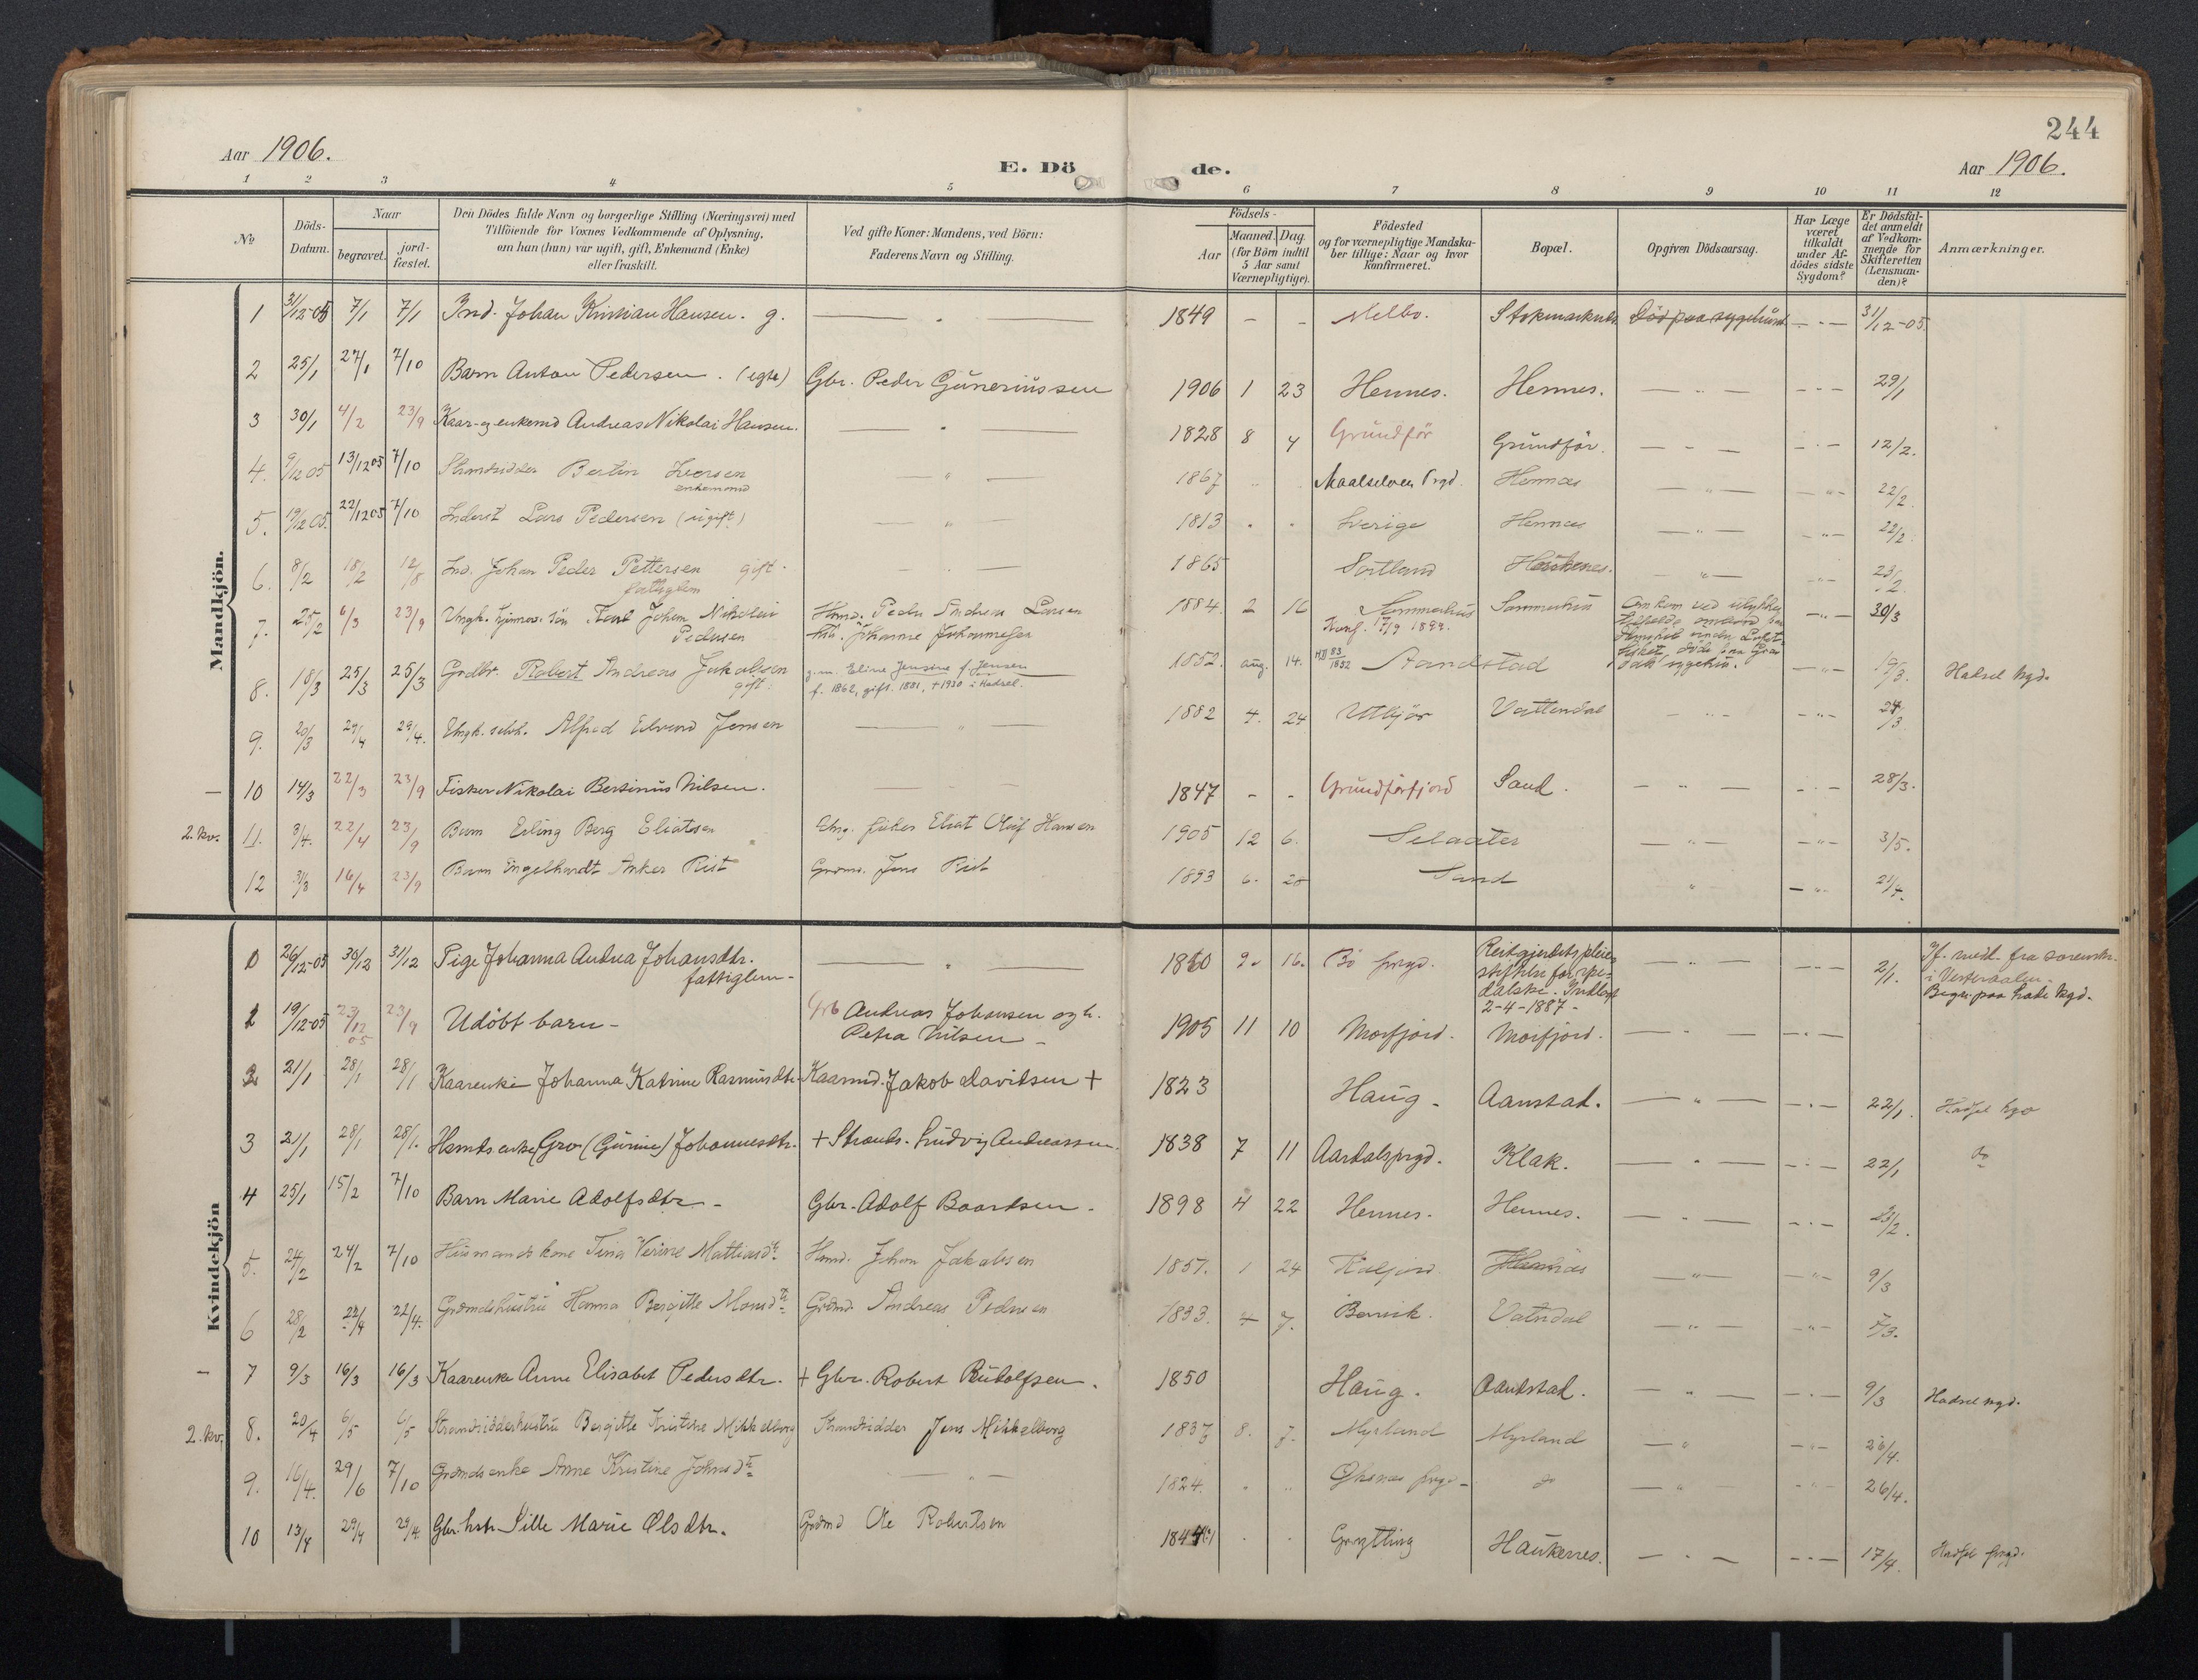 244
Aar 1906.
E. Dö de.
Aar 1906.
1 2 3 4 5 6 7 8 9 10 11 12
№
Döds-
Datum.
Naar
begravet.
jord-
fæstet.
Den Dödes fulde Navn og borgerlige Stilling (Næringsvei) med
Tilföiende for Voxnes Vedkommende af Oplysning,
om han (hun) var ugift, gift, Enkemand (Enke)
eller fraskilt.
Ved gifte Koner: Mandens, ved Börn:
Faderens Navn og Stilling.
Födsels-
Aar
Maaned. Dag.
(for Börn indtil
5 Aar samt
Værnepligtige).
Födested
og for værnepligtige Mandska-
ber tillige: Naar og hvor
konfirmeret.
Bopæl.
Opgiven Dödsaarsag.
Har Læge
været
tilkaldt
under Af-
dödes sidste
Sygdom?
Er Dödsfal-
det anmeldt
af Vedkom-
mende for
Skifteretten
(Lensman-
den)?
Anmærkninger.
Mandkjön.
1 31/12-05 7/1 7/1 Ind. Johan Kristian Hansen. g. — " — 1849 - - Melbo. Stokmarknes Död paa sygehuset — " — 31/12-05
2 25/1 27/1 7/10 Barn Anton Pedersen. (egte) Gbr. Peder Gúneriússen 1906 1 23 Hennes. Hennes. — " — — " — 29/1
3 30/1 4/2 23/9 Kaar- og enkemd Andreas Nikolai Hansen. — " — 1828 8 4 Grúndför Grúndför. — " — — " — 12/2.
4. 9/12 05 13/12 05 7/10 Strandsidder Bertin Iversen
enkemand — " — 1867 " " Maalselven Prgd. Hennes — " — — " — 22/2.
5. 19/12 05. 22/12 05 7/10 Inderst Lars Pedersen (úgift) — " — 1813 " " Sverige Hennes — " — — " — 22/2.
6. 8/2 18/2 12/8 Ind. Johan Peder Pettersen gift.
fattiglem — " — 1865 Sortland Haúkenes. — " — — " — 23/2.
7. 25/2 6/3 23/9 Ungk. hjemmev. sön Karl Johan Nikolai
Pedersen Hmd. Peder Andreas Larsen
hú. Johanne Johannesen 1884. 2 16 Sommerhús
Konf. 17/9 1899. Sommerhús Omkom ved úlykkes
tilfælde
únder Lofot
fisket, döde paa Grav
dals sygehús. — " — 30/3
8. 18/3 25/3 25/3 Grdbr. Robert Andreas Jakobsen
gift. g. m. Eline Jensine f. Jensen
f. 1862, gift. 1881, +1920 i Hadsel. 1852. aug. 14. Sandstad — " — 19/3. Hadsel kgd.
9. 20/3 29/4 29/4. Ungk. selvh. Alfred Edvard Jensen — " — 1882 4. 24 Utbjör Vattendal — " — — " — 24/3
10 14/3 22/3 23/9 Fisker Nikolai Bersinús Nilsen. — — 1847 - - Grúndförfjord Sand. — " — — " — 28/3.
2. kv. 11. 3/4. 22/4 23/9 Barn Erling Berg Eliatsen Ung. fisker Eliat Olúf Hansen 1905 12 6. Selaater — " — — " — 3/5.
12 31/3 16/4 23/9 Barn Engelhardt Anker Rist Grdmd. Jens Rist 1893 6. 28 Sand " — " 21/4.
Kvindekjön
1 26/12-05 30/12 31/12 Pige Johanna Andrea Johansdtr.
fattiglem - — " — 1850 9. 16. Bö prgd. Reitgjerdets pleie-
stiftelse for spe-
dalske. Indlagt
2-4-1887 - — " — — " — 2/1. If. medd. fra sorenskr.
i Vesteraalen.
Begr. paa Lade kgd.
1 19/12-05 23/12 05 23/9 Udöbt barn - Grb Andreas Johansen og h.
Petra Nilsen - 1905 11 10 Morfjord. Morfjord. — " — — " —
2 21/1 28/1 28/1 Kaarenke Johanna Katrine Rasmúsdtr. Kaarmd. Jakob Davidsen + 1823 Haúg. Aanstad. — " — — " — 22/1. Hadsel kgd
3 21/1 28/1 28/1. Hsmds enke Gro (Gúrine) Johannesdtr. + Strands. Lúdvig Andreassen 1838 7 11 Aardalsprgd. Klak. — " — — " — 22/1 do
4 25/1 15/2 7/10 Barn Marie Adolfsdtr - Gbr. Adolf Baardsen. 1898 4 22 Hennes. Hennes. — " — — " — 23/2.
5. 24/2 24/2 7/10 Húsmands kone Tina Verine Mattiasdtr. Hmd. Johan Jakobsen 1857. 1 24 Kaljord Hennes — " — — " — 9/3
6 28/2 22/4 22/4. Grdmdshústrú Hanna Bergitte Monsdtr Grdmd. Andreas Pedersen 1833. 4 7. Barvik. Vatndal — " — — " — 5/3.
7 9/3 16/3 16/3 Kaarenke Anne Elisabet Pedersdtr. + Gbr. Robert Rúdolfsen. 1850 Haúg. Aanstad. — " — — " — 9/3 Hadsel kgd.
2. kv. 8. 20/4 6/5 6/5 Strandsidderhústrú Bergitte Kristine Mikkelborg Strandsidder Jens Mikkelborg 1837 8. 7. Myrland Myrland — " — " — 26/4.
9. 16/4. 29/6 7/10 Grdmdsenke Anne Kristine Johnsdtr — " — 1824. " " Öksnes prgd. do — " — — " — 26/4.
10 13/4 29/4 29/4. Gbr. hstr Sille Marie Olsdtr. Grdmd Ole Robertsen 1844 " " Grytting Haúkenes. — " — — " — 17/4. Hadsel prgd.